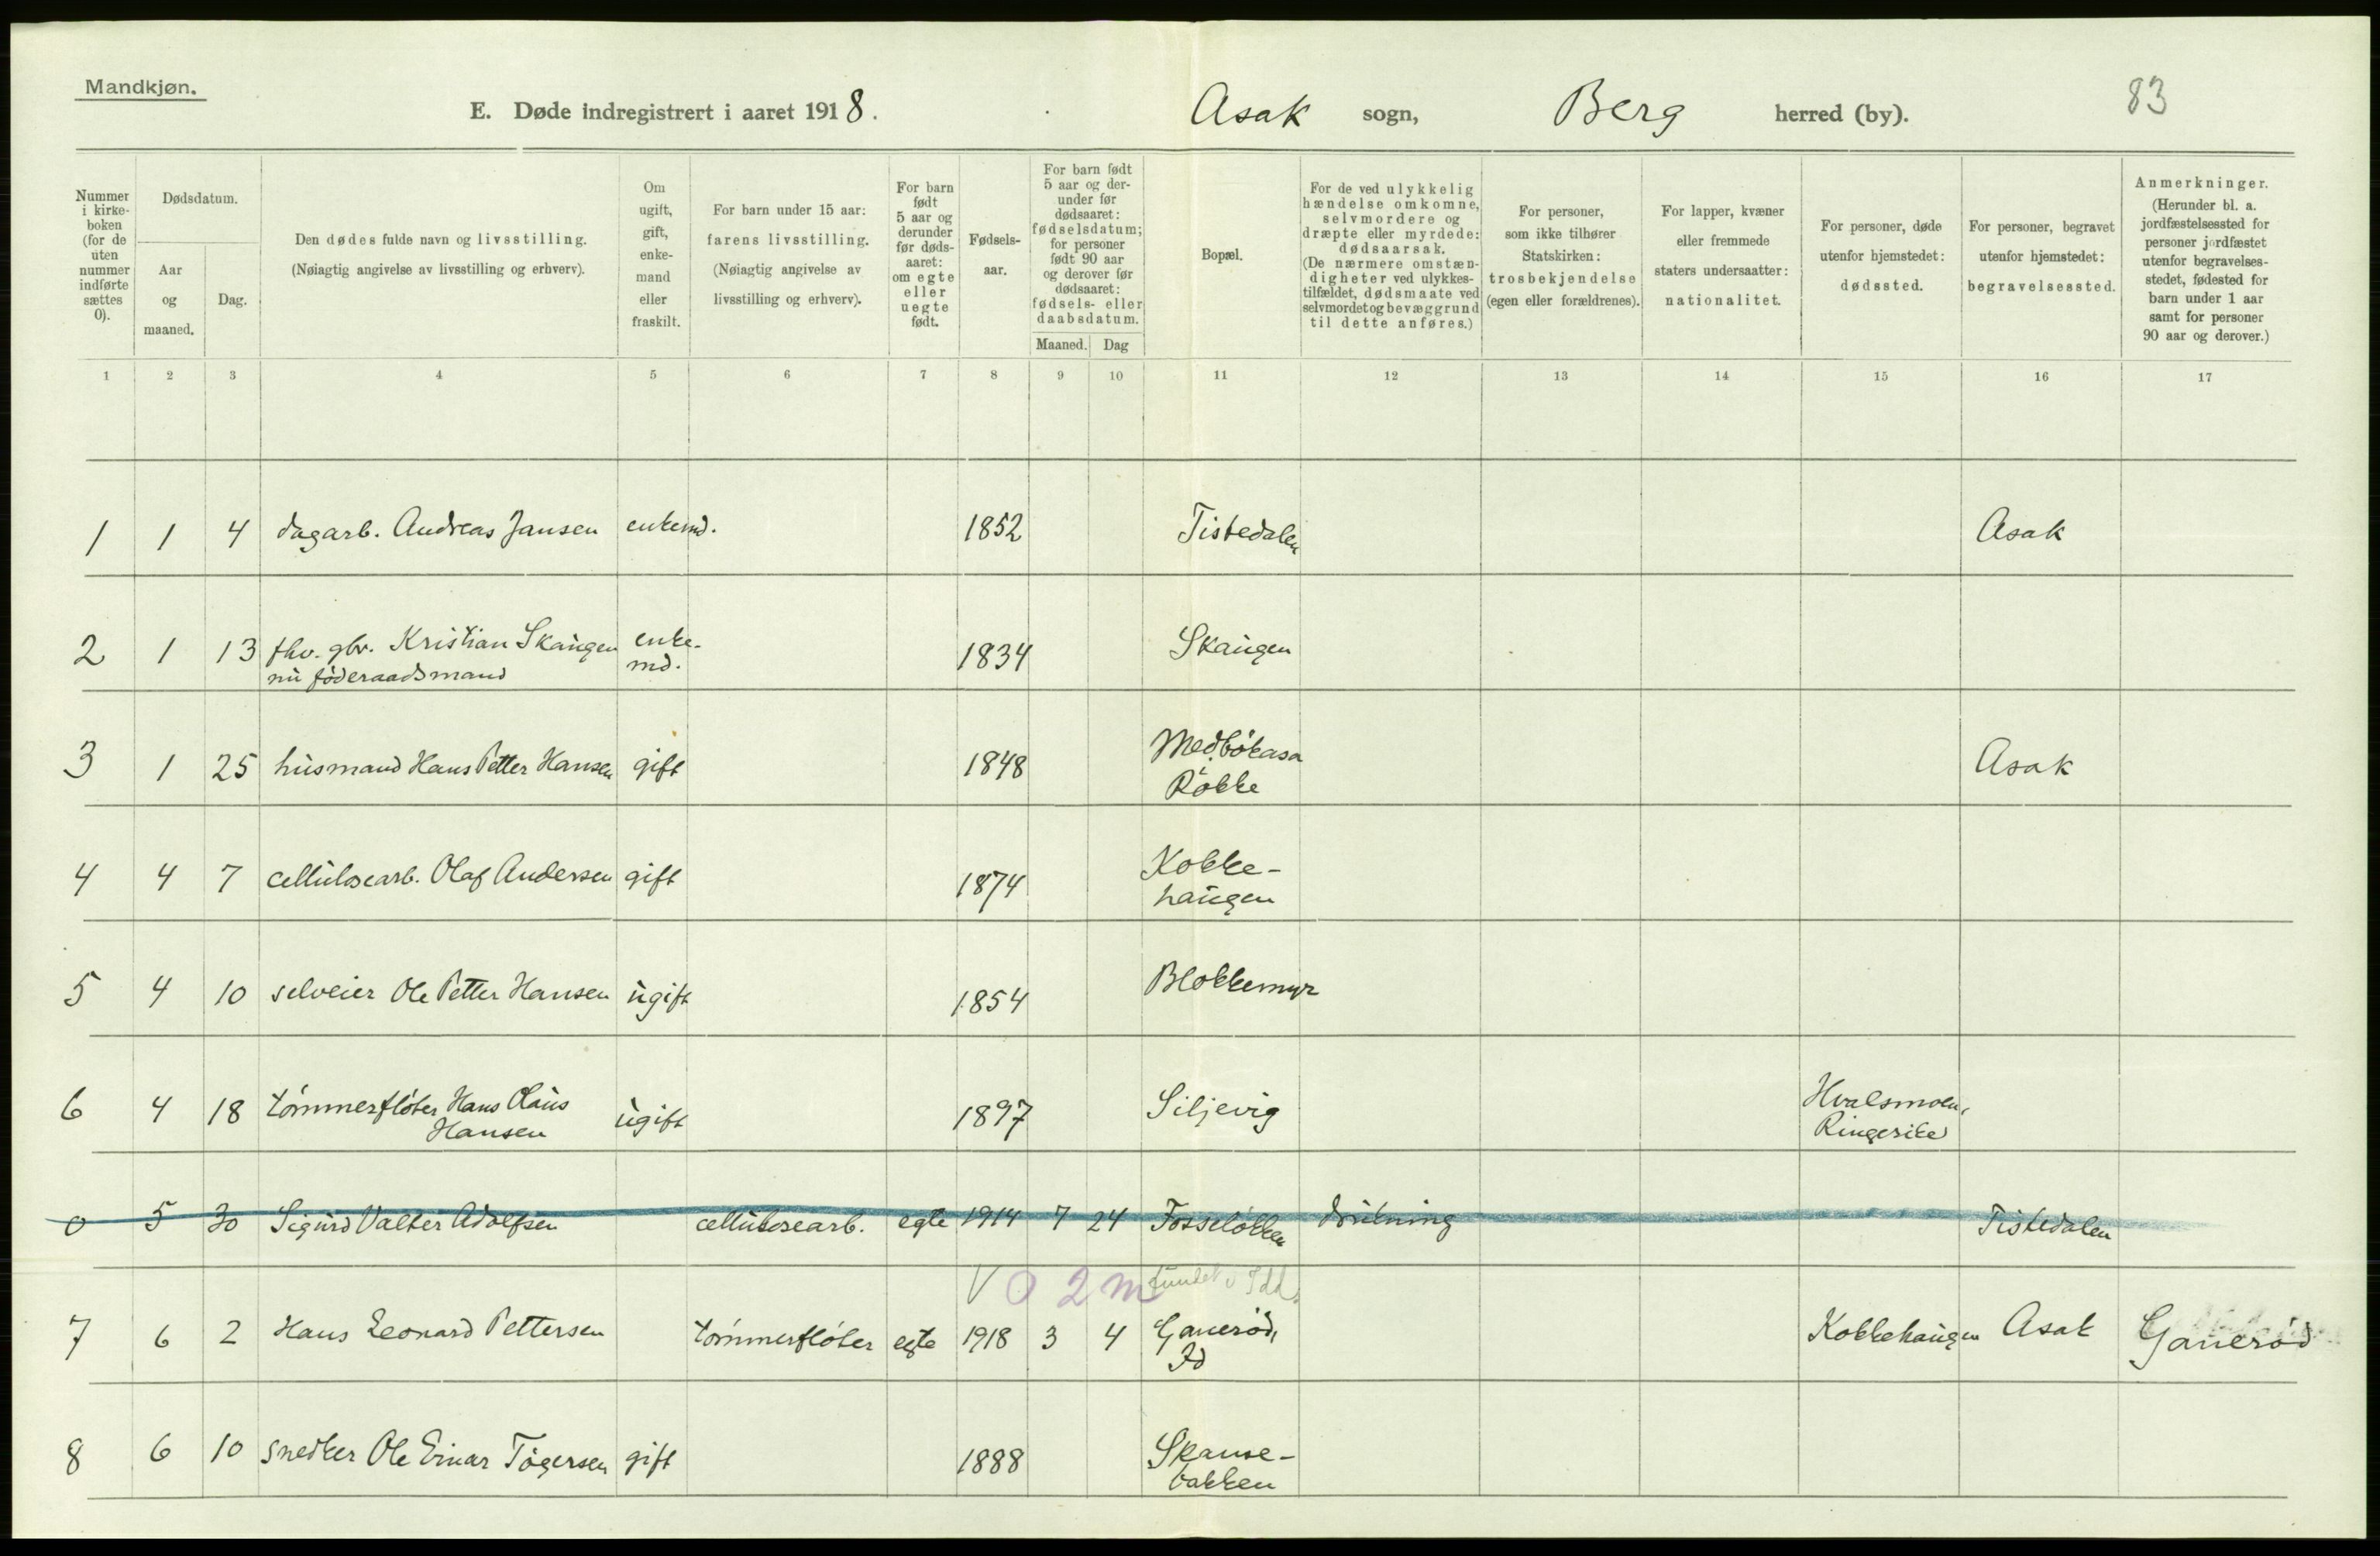 Mandkjøn.
E. Døde indregistrert i aaret 1918.
Asak sogn, Berg herred (by). 83
Nummer i kirke-boken (for de uten nummer indførte sættes 0).
Dødsdatum.
Aar og maaned.
Dag.
Den dødes fulde navn og livsstilling.
(Nøiagtig angivelse av livsstilling og erhverv).
Om ugift, gift, enke-mand eller fraskilt.
For barn under 15 aar: farens livsstilling.
(Nøiagtig angivelse av livsstilling og erhverv).
For barn født 5 aar og derunder før døds-aaret: om egte eller uegte født.
Fødsels-aar.
For barn født 5 aar og der-under før dødsaaret: fødselsdatum; for personer født 90 aar og derover før dødsaaret: fødsels- eller daabsdatum.
Maaned. Dag
Bopæl.
For de ved ulykkelig hændelse omkomne, selvmordere og dræpte eller myrdede: dødsaarsak.
(De nærmere omstæn-digheter ved ulykkes-tilfældet, dødsmaate ved selvmordet og bevæggrund til dette anføres.)
For personer, som ikke tilhører Statskirken: trosbekjendelse (egen eller forældrenes).
For lapper, kvæner eller fremmede staters undersaatter: nationalitet.
For personer, døde utenfor hjemstedet: dødssted.
For personer, begravet utenfor hjemstedet: begravelsessted.
Anmerkninger.
(Herunder bl. a. jordfæstelsessted for personer jordfæstet utenfor begravelses-stedet, fødested for barn under 1 aar samt for personer 90 aar og derover.)
1 2 3 4 5 6 7 8 9 10 11 12 13 14 15 16 17
1 1 4 dagarb. Andreas Jansen enkemd. 1852 Tistedalen Asak
2 1 13 fhv. gbr. Kristian Skaugen enke- 1834 Skaugen
nu föderaadsmand md.
3 1 25 husmand Hans Petter Hansen gift 1848 Medbökasa Asak
Rökke
4 4 7 cellulosearb. Olaf Andersen gift 1874 Kokke-
haugen
5 4 10 selveier Ole Petter Hansen ugift 1854 Blokkemyr
6 4 18 tömmerflöter Hans Olaus ugift 1897 Siljevig Hvalsmoen,
Hansen Ringerike
0 5 30 Sigurd Valter Adolfsen cellulosearb. egte 1914 7 24 Fosselökken drukning Tistedalen
V 0 2 m fundet i Idd.
7 6 2 Hans Leonard Pettersen tömmerflöter egte 1918 3 4 Ganeröd, Kokkehaugen Asak Ganeröd
Id
8 6 10 snedker Ole Einar Tögersen gift 1888 Skanse-
bakken